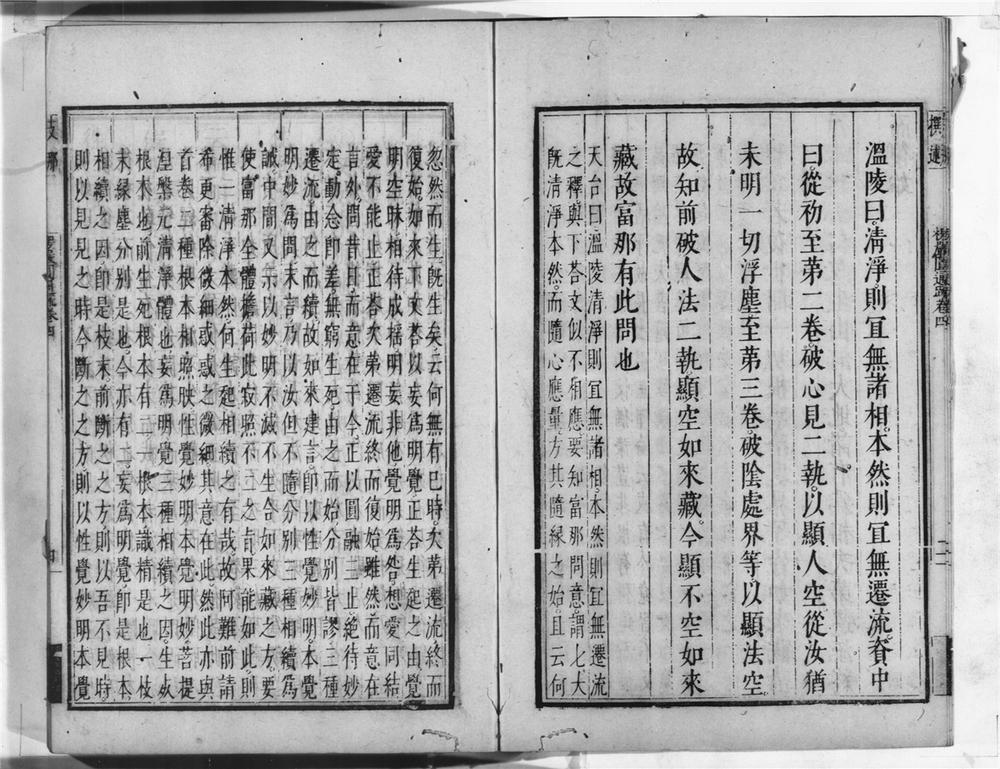 溫陵曰清淨則宜無諸相本然則宜無遷流資中
曰從初至第二卷破心見二執以顯人空從汝猶
未明一切浮塵至第三卷破陰處界等以顯法空
故知前破人法二執顯空如來藏今顯不空如來
藏故富那有此問也
天台曰溫陵清淨則宜無諸相本然則宜無遷流
之釋與下荅文似不相應要知富那問意謂七大
旣清淨本然而隨心應量方其隨緣之始且云何
忽然而生旣生矣云何無有已時次第遷流終而
復始如來下文荅以妄爲明覺正荅生起之由覺
明空昧相待成搖明妄非他覺明爲咎想愛同結
愛不能止正荅次第遷流終而復始雖然而意在
言外問昔日而意在于今正以圓融三止絕待妙
定動念卽差無窮生死由之而始分別皆謬三種
遷流由之而續故如來建言卽以性覺妙明本覺
明妙爲問末言乃以汝但不隨分別三種相續爲
誠中間又示以妙明不滅不生合如來藏之方要
使富那全體擔荷此寂照不二之旨果能如此則
惟一清淨本然何生起相續之有哉故阿難前請
希更審除微細或惑之微細其意在此然此亦與
首卷二種根本相照映性覺妙明本覺明妙菩提
涅槃元清淨體也妄爲明覺三種相續之因生死
根本也前生死根本有二一根本識精是也一枝
末緣塵分別是也今亦有二妄爲明覺卽是根本
相續之因卽是枝末前斷之之方則以吾不見時
則以見見之時今斷之之方則以性覺妙明本覺